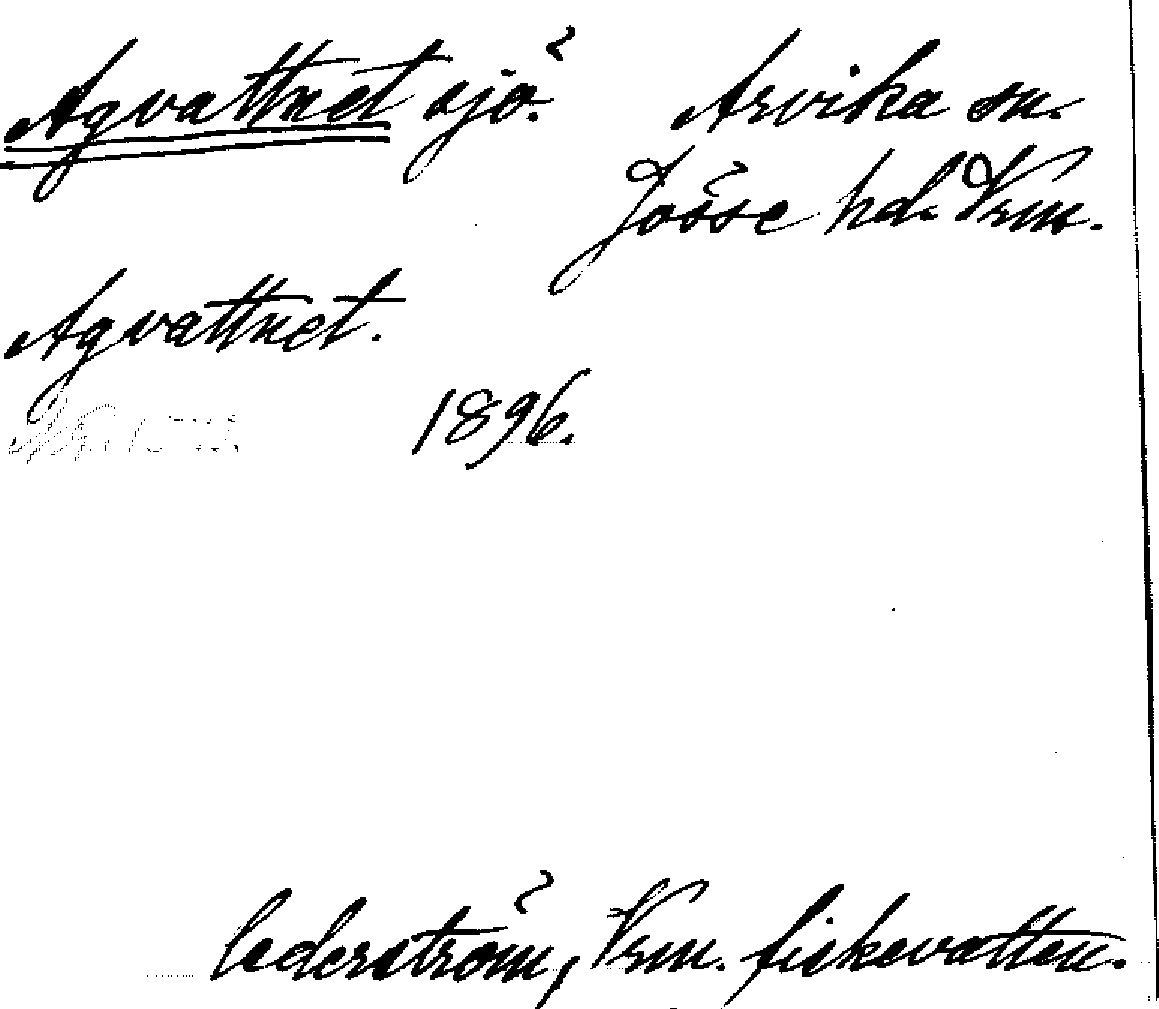 Agvattnet sjö. Arvika sn.
Jösse hd. Vrm.
Agvattnet.
1896.
Cederström, Vrm. fiskevatten.